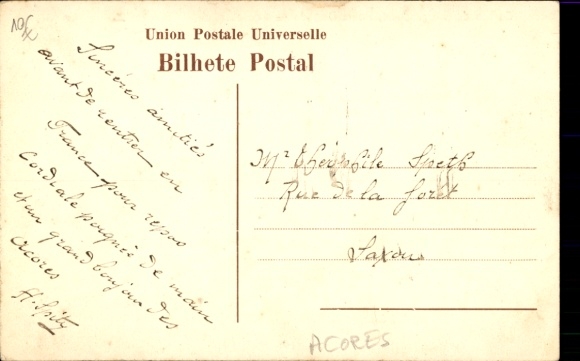 10€
Union Postale Universelle
Bilhete Postal
Sincères amitiés
avant de rentrer en
France pour repos
Cordiale poignés de main
et un grand bonjour des
Acores
H. Spitz
Mr Théophile Speth
Rue de la forêt
Saxon
ACORES